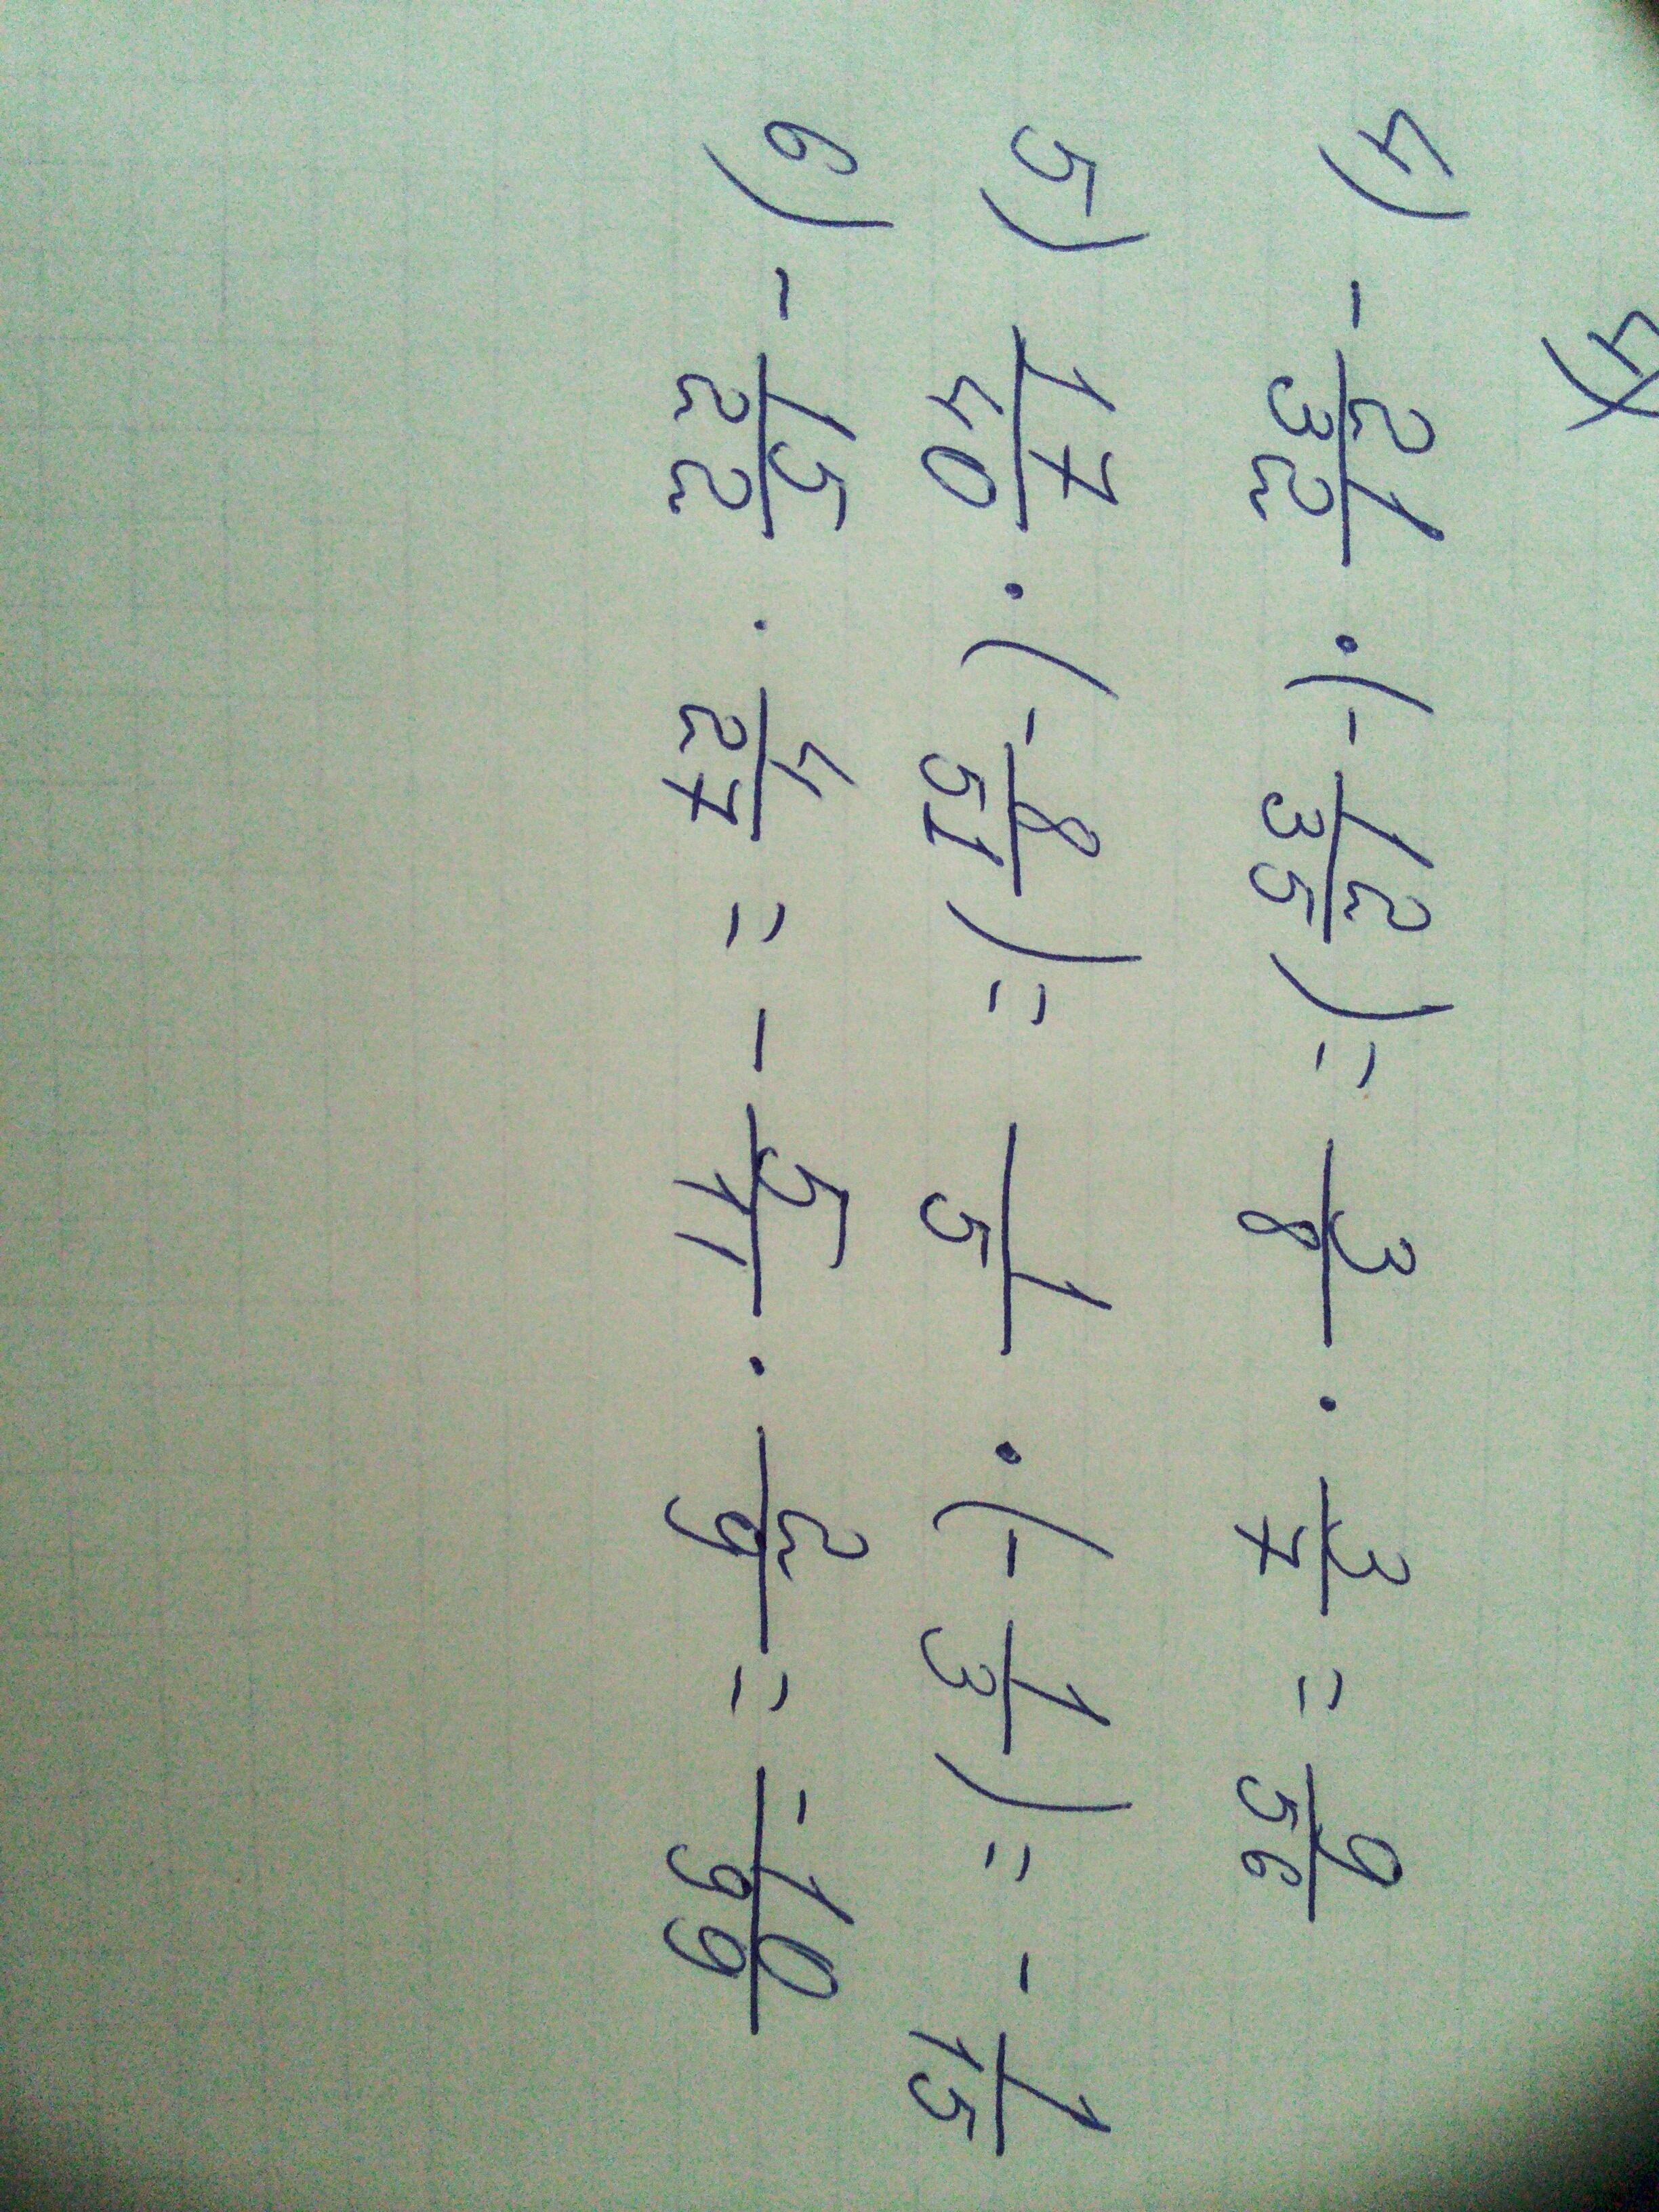 4)
4) - 21/32 · (- 12/35) = 3/8 · 3/7 = 9/56
5) 17/40 · (- 8/51) = 1/5 · (- 1/3) = - 1/15
6) - 15/22 · 4/27 = - 5/11 · 2/9 = - 10/99